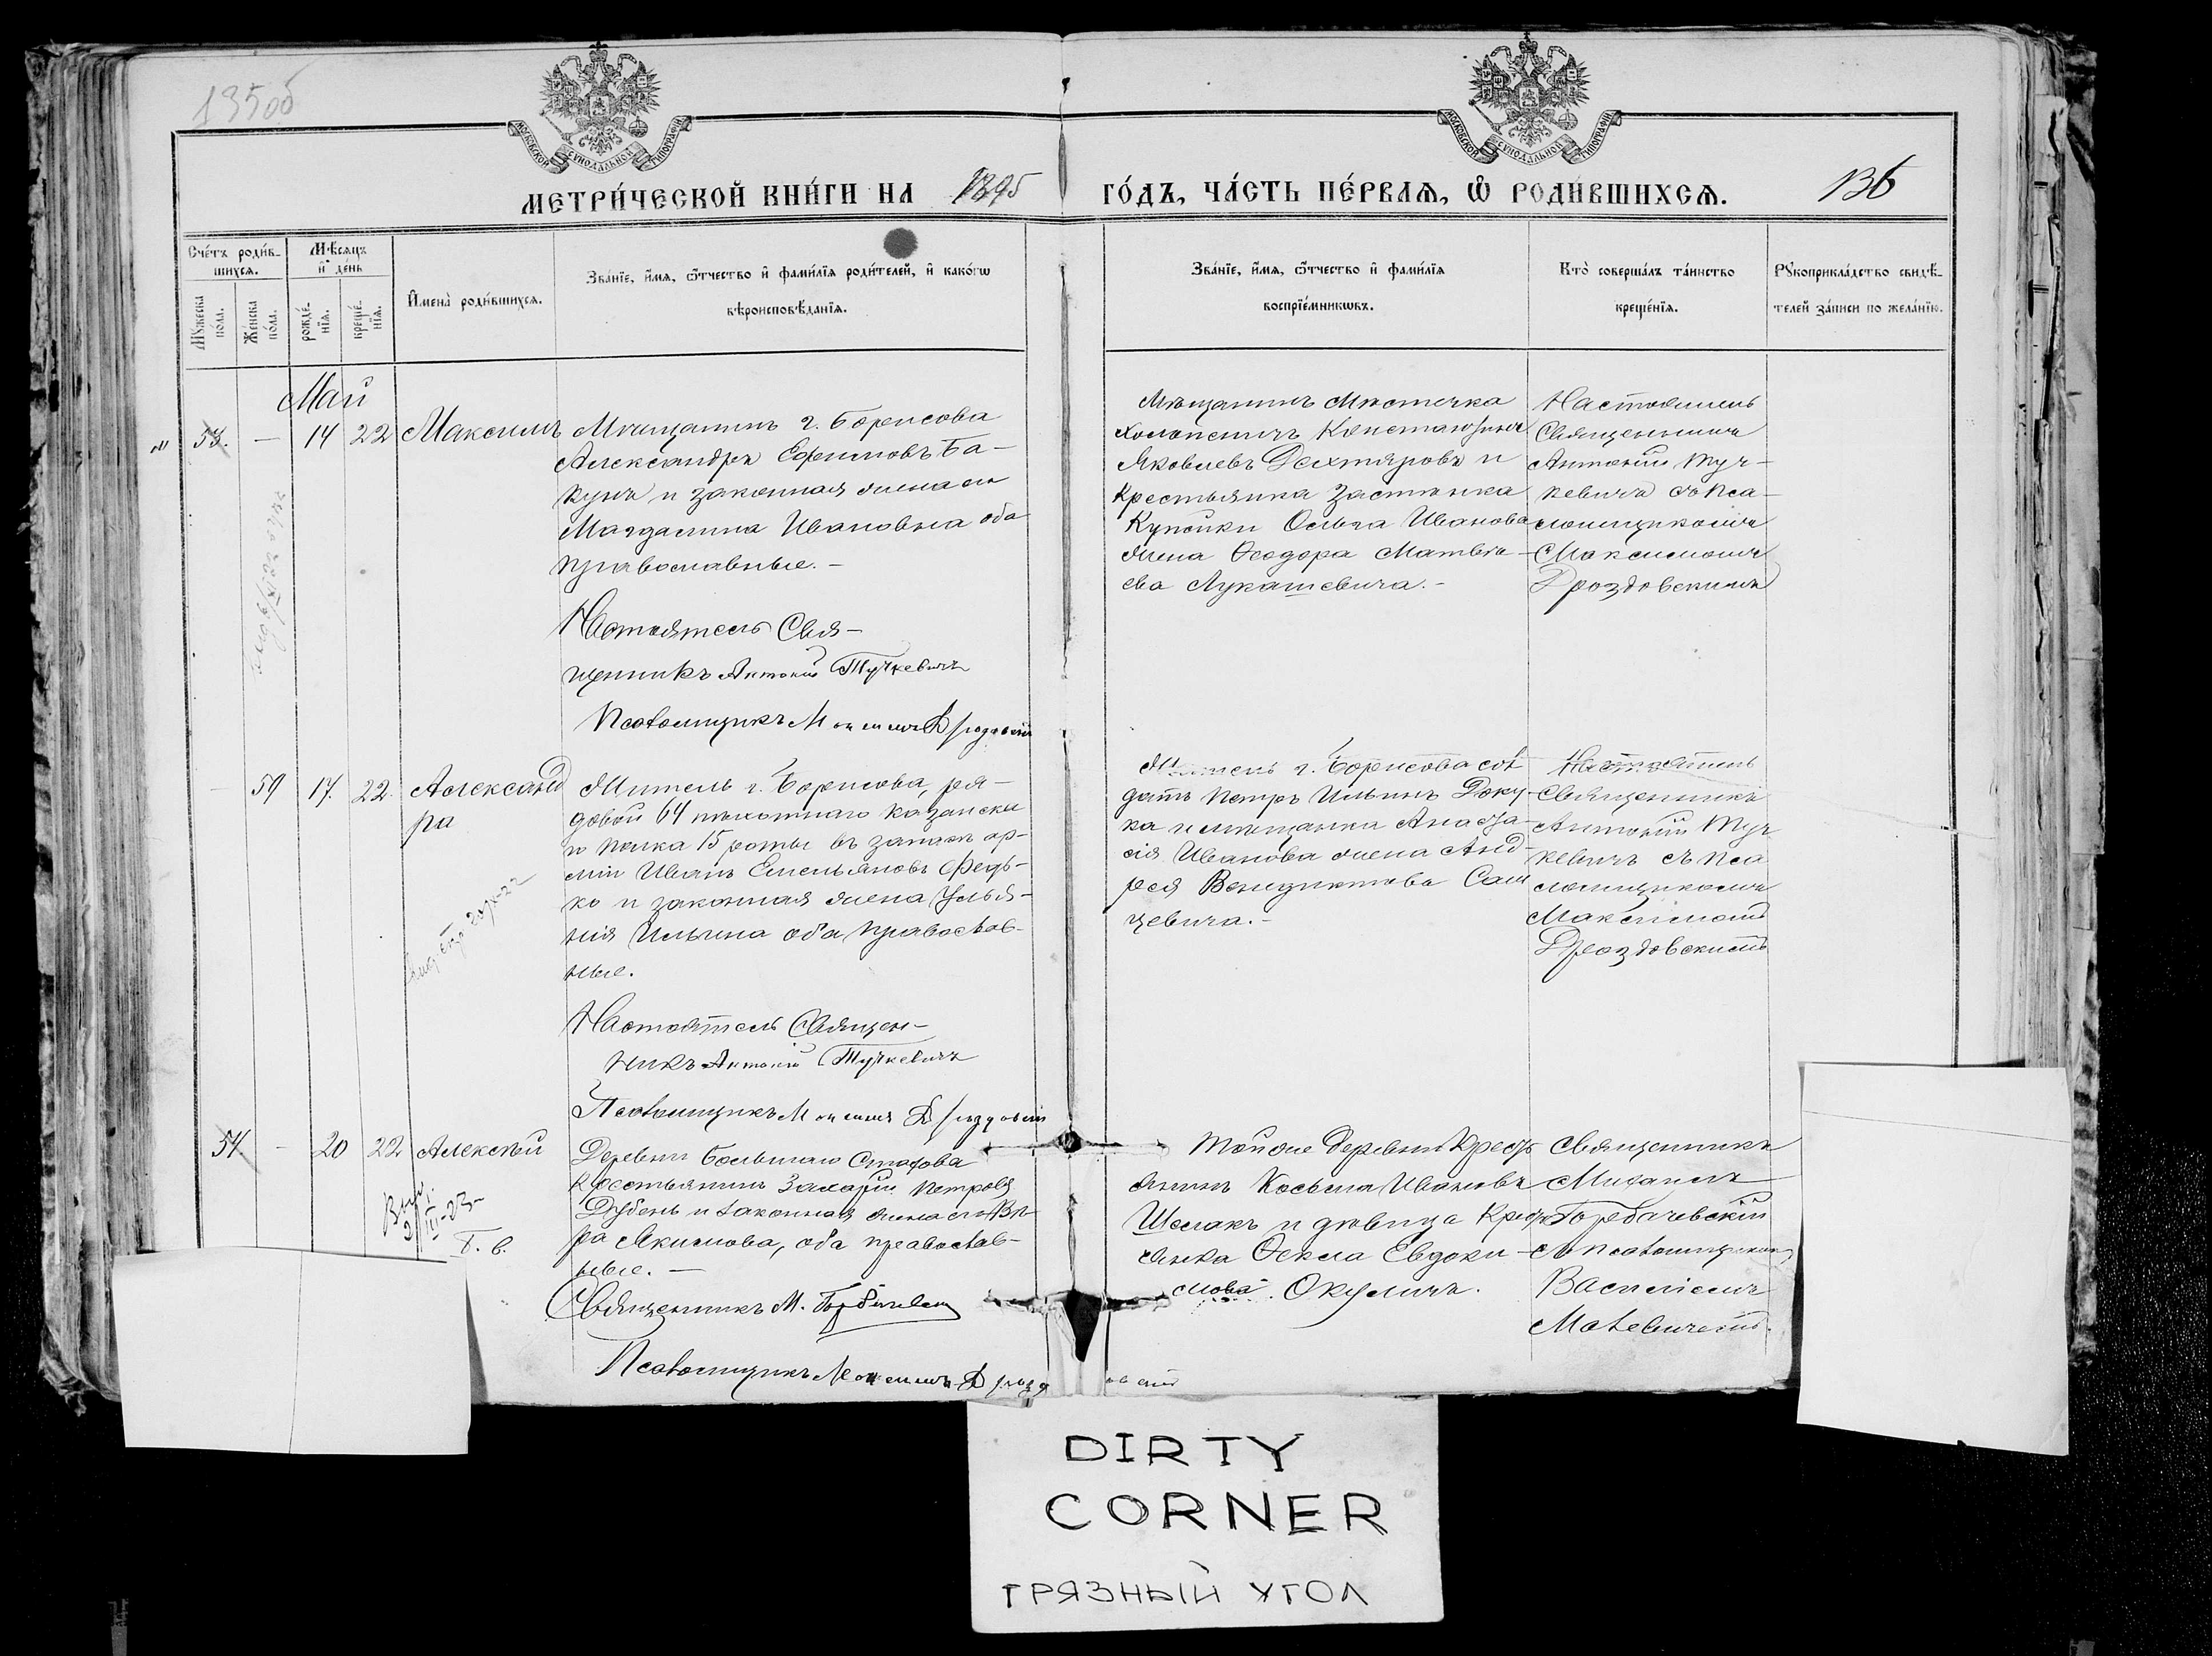 135об
МОСКОВСКОЙ СѴНОДАЛЬНОЙ ТИПОГРАФІИ
МОСКОВСКОЙ СѴНОДАЛЬНОЙ ТИПОГРАФІИ
МЕТРИ́ЧЕСКОЙ КНИ́ГИ НА 1895 ГО́ДЪ, ЧА́СТЬ ПЕ́РВАѦ, Ѡ РОДИ́ВШИХСѦ. 136
Сче́тъ роди́в-
шихсѧ.
Мѹжеска по́ла.
Же́нска по́ла.
Мѣ́сѧцъ и҆ де́нь
рожде́-нїѧ.
креще́-нїѧ.
И҆мена̀ роди́вшихсѧ.
Зва́нїе, и҆́мѧ, ѻ҆́тчество и҆ фами́лїѧ роди́телей, и҆ како́гѡ
вѣроисповѣ́данїѧ.
Зва́нїе, и҆́мѧ, ѻ҆́тчество и҆ фами́лїѧ
воспрїе́мникѡвъ.
Кто̀ соверша́лъ та́инство
креще́нїѧ.
Рѹкоприкла́дство свидѣ́-
телей за́писи по жела́нїю.
Май
53. — 14 22 Максимъ
Мѣщанинъ г. Борисова
Александръ Ефимовъ Ба-
кунъ и законная жена его
Магдалина Ивановна оба
православные. —
Настоятель Свя-
щенникъ Антоній Тучкевичъ
Псаломщикъ Максимъ Дроздовскій
Мѣщанинъ мѣстечка
Холопеничъ Константинъ
Яковлевъ Дехтяровъ и
крестьянка застѣнка
Купейки Ольга Иванова
жена Ѳеодора Матвѣ-
ева Лукашевича. —
Настоятель
Священникъ
Антоній Туч-
кевичъ съ пса-
ломщикомъ
Максимомъ
Дроздовскимъ
59 17. 22. Александ
ра
Житель г. Борисова, ря-
довой 64 пѣхотнаго Казанска
го полка 15 роты въ запасѣ ар-
міи Иванъ Емельяновъ Федь-
ко и законная жена Улья-
нія Ильина оба православ-
ные.
Настоятель Священ-
никъ Антоній Тучкевичъ
Псаломщикъ Максимъ Дроздовскій
Житель г. Борисова сол
датъ Петръ Ильинъ Доку
ка и мѣщанка Анаста-
сія Иванова жена Анд-
рея Венедиктова Сам
цевича. —
Настоятель
Священникъ
Антоній Туч
кевичъ съ пса
ломщикомъ
Максимомъ
Дроздовскимъ
54. — 20 22 Алексѣй
Деревни Большаго Стахова
крестьянинъ Захарій Петровъ
Дубень и законная жена его Вѣ-
ра Акимова, оба православ-
ные. —
Священникъ М. Горбачевскій
Псаломщикъ Максимъ Дроздовскій
Той же деревни кресть
янинъ Косьма Ивановъ
Шелакъ и дѣвица крест
янка Ѳекла Евдоки-
мова Окуличъ.
Священникъ
Михаилъ
Горбачевскій
съ псаломщикомъ
Василіемъ
Малевичемъ.
DIRTY
CORNER
ГРЯЗНЫЙ УГОЛ